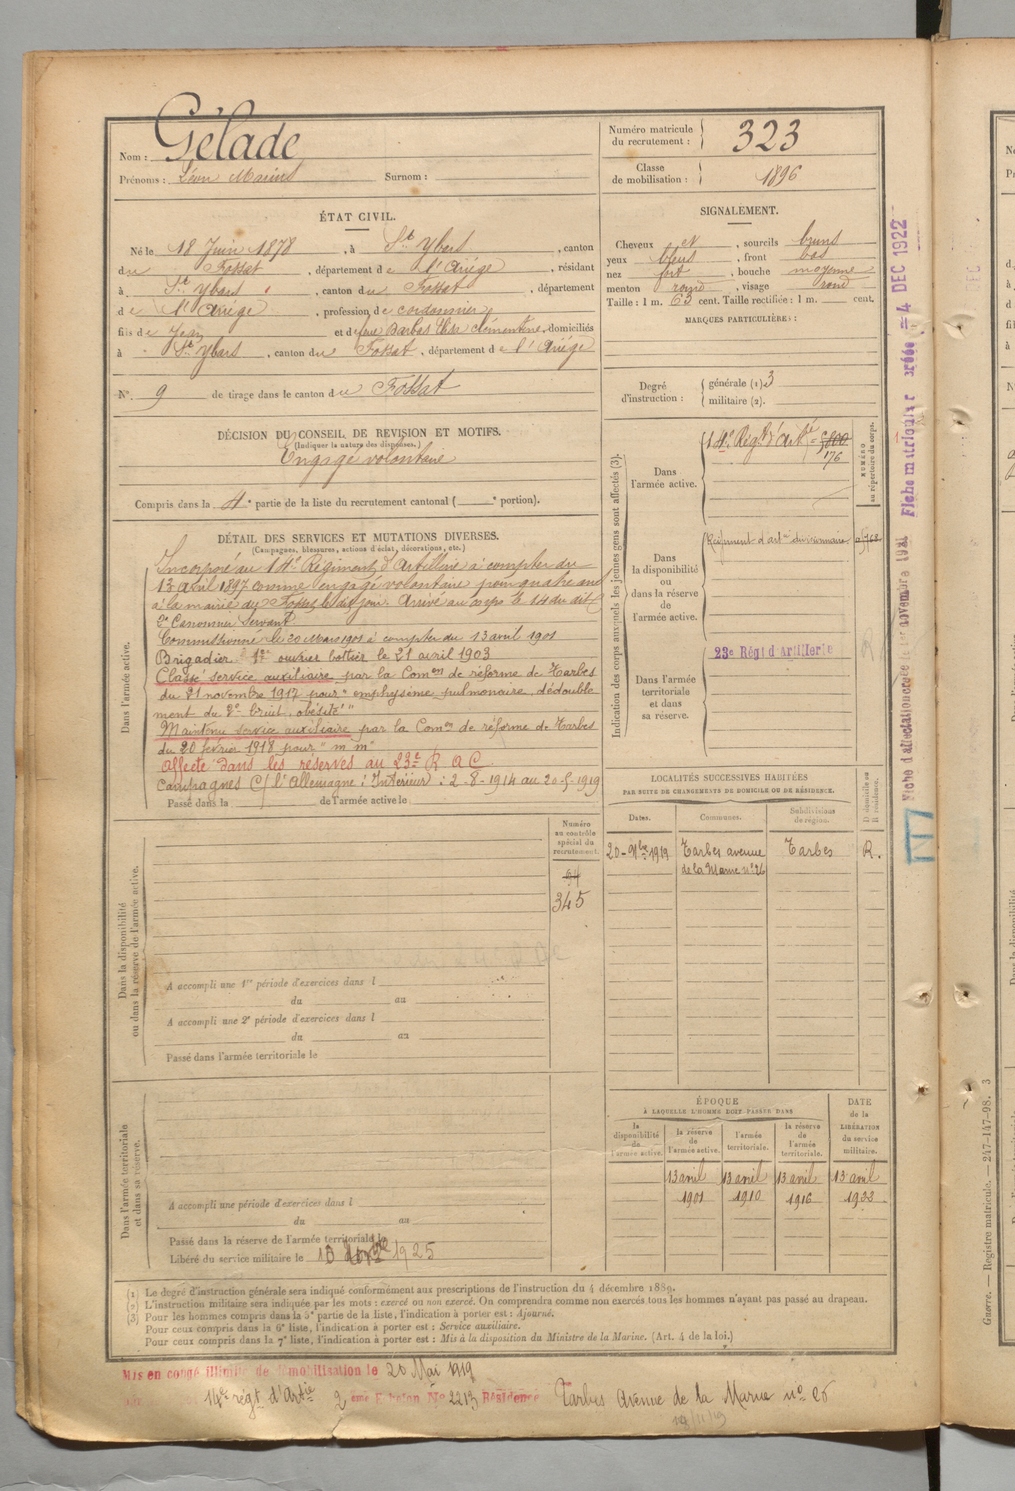 Nom : Gélade
Prénoms : Léon Marius Surnom :
Numéro matricule du recrutement : 323
Classe de mobilisation : 1896
ÉTAT CIVIL.
Né le 18 Juin 1878, à St Ybars, canton
du Fossat, département de l'Ariége, résidant
à St Ybars, canton du Fossat, département
de l'Ariége, profession de cordonnier
fils de Jean et de feue Barbes Clémentine, domiciliés
à St Ybars, canton du Fossat, département de l'Ariége
N° 9 de tirage dans le canton du Fossat
SIGNALEMENT.
Cheveux et, sourcils bruns
yeux bleus, front bas
nez fort, bouche moyenne
menton rond, visage rond
Taille : 1 m. 63 cent. Taille rectifiée : 1 m. cent.
MARQUES PARTICULIÈRES :
Degré d'instruction : générale (1) 3
militaire (2).
DÉCISION DU CONSEIL DE REVISION ET MOTIFS.
(Indiquer la nature des dispenses.)
Engagé volontaire
Compris dans la 4e partie de la liste du recrutement cantonal ( e portion).
DÉTAIL DES SERVICES ET MUTATIONS DIVERSES.
(Campagnes, blessures, actions d'éclat, décorations, etc.)
Dans l'armée active.
Incorporé au 14e Régiment d'Artillerie à compter du
13 avril 1897 comme engagé volontaire pour quatre ans
à la mairie du Fossat le dit jour. Arrivé au corps le 14 du dit
2e Canonnier Servant
Commissionné le 20 Mars 1901 à compter du 13 avril 1901
Brigadier 1er ouvrier bottier le 21 avril 1903
Classé service auxiliaire par la Comon de réforme de Tarbes
du 21 novembre 1917 pour "emphysème pulmonaire, dédouble
ment du 2e bruit, obésité"
Maintenu service auxiliaire par la Comon de réforme de Tarbes
du 20 février 1918 pour "m m"
Affecté dans les réserves au 23e R A C
Campagnes C/ l'Allemagne : Intérieur : 2-8-1914 au 20-5-1919
Passé dans la de l'armée active le
Indication des corps auxquels les jeunes gens sont affectés (3).
NUMÉRO au répertoire du corps.
Dans l'armée active.
14e Régt d'Artie
176
Dans la disponibilité ou dans la réserve de l'armée active.
Régiment d'artie
Dans l'armée territoriale et dans sa réserve.
23e Régt d'Artillerie
LOCALITÉS SUCCESSIVES HABITÉES
PAR SUITE DE CHANGEMENTS DE DOMICILE OU DE RÉSIDENCE.
Dates. Communes. Subdivisions de région. D domicile ou R résidence.
20-9bre 1919 Tarbes avenue Tarbes R.
de la Marne n° 26
Dans la disponibilité ou dans la réserve de l'armée active.
Numéro au contrôle spécial du recrutement.
94
345
A accompli une 1re période d'exercices dans l
du au
A accompli une 2e période d'exercices dans l
du au
Passé dans l'armée territoriale le
Dans l'armée territoriale et dans sa réserve.
A accompli une période d'exercices dans l
du au
Passé dans la réserve de l'armée territoriale le
Libéré du service militaire le 10 1925
ÉPOQUE
À LAQUELLE L'HOMME DOIT PASSER DANS
DATE de la LIBÉRATION du service militaire.
la disponibilité de l'armée active. la réserve de l'armée active. l'armée territoriale. la réserve de l'armée territoriale.
13 avril 13 avril 13 avril 13 avril
1901 1910 1916 1922
(1) Le degré d'instruction générale sera indiqué conformément aux prescriptions de l'instruction du 4 décembre 1889.
(2) L'instruction militaire sera indiquée par les mots : exercé ou non exercé. On comprendra comme non exercés tous les hommes n'ayant pas passé au drapeau.
(3) Pour les hommes compris dans la 5e partie de la liste, l'indication à porter est : Ajourné.
Pour ceux compris dans la 6e liste, l'indication à porter est : Service auxiliaire.
Pour ceux compris dans la 7e liste, l'indication à porter est : Mis à la disposition du Ministre de la Marine. (Art. 4 de la loi.)
Mis en congé illimité de démobilisation le 20 Mai 1919
14e régt d'Artie 2 ème Echelon N° 2213 Résidence Tarbes Avenue de la Marne n° 26
Fiche d'affectation créée le novembre 1921 Fiche matriculaire créée = 4 DEC 1922
Guerre. — Registre matricule. — 247-147-98. 3